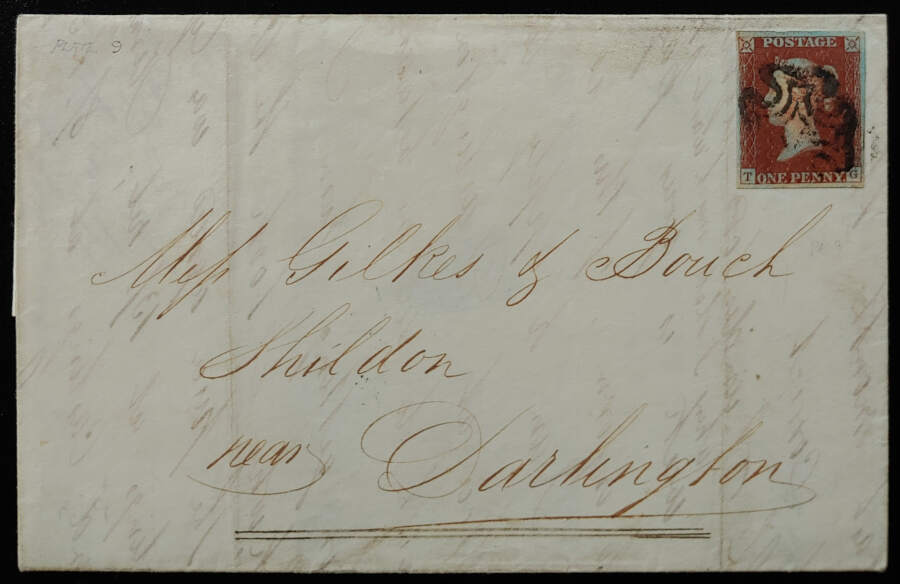 PLATE 9
POSTAGE
T ONE PENNY. G
Mess Gilkes & Bouch
Shildon
near Darlington